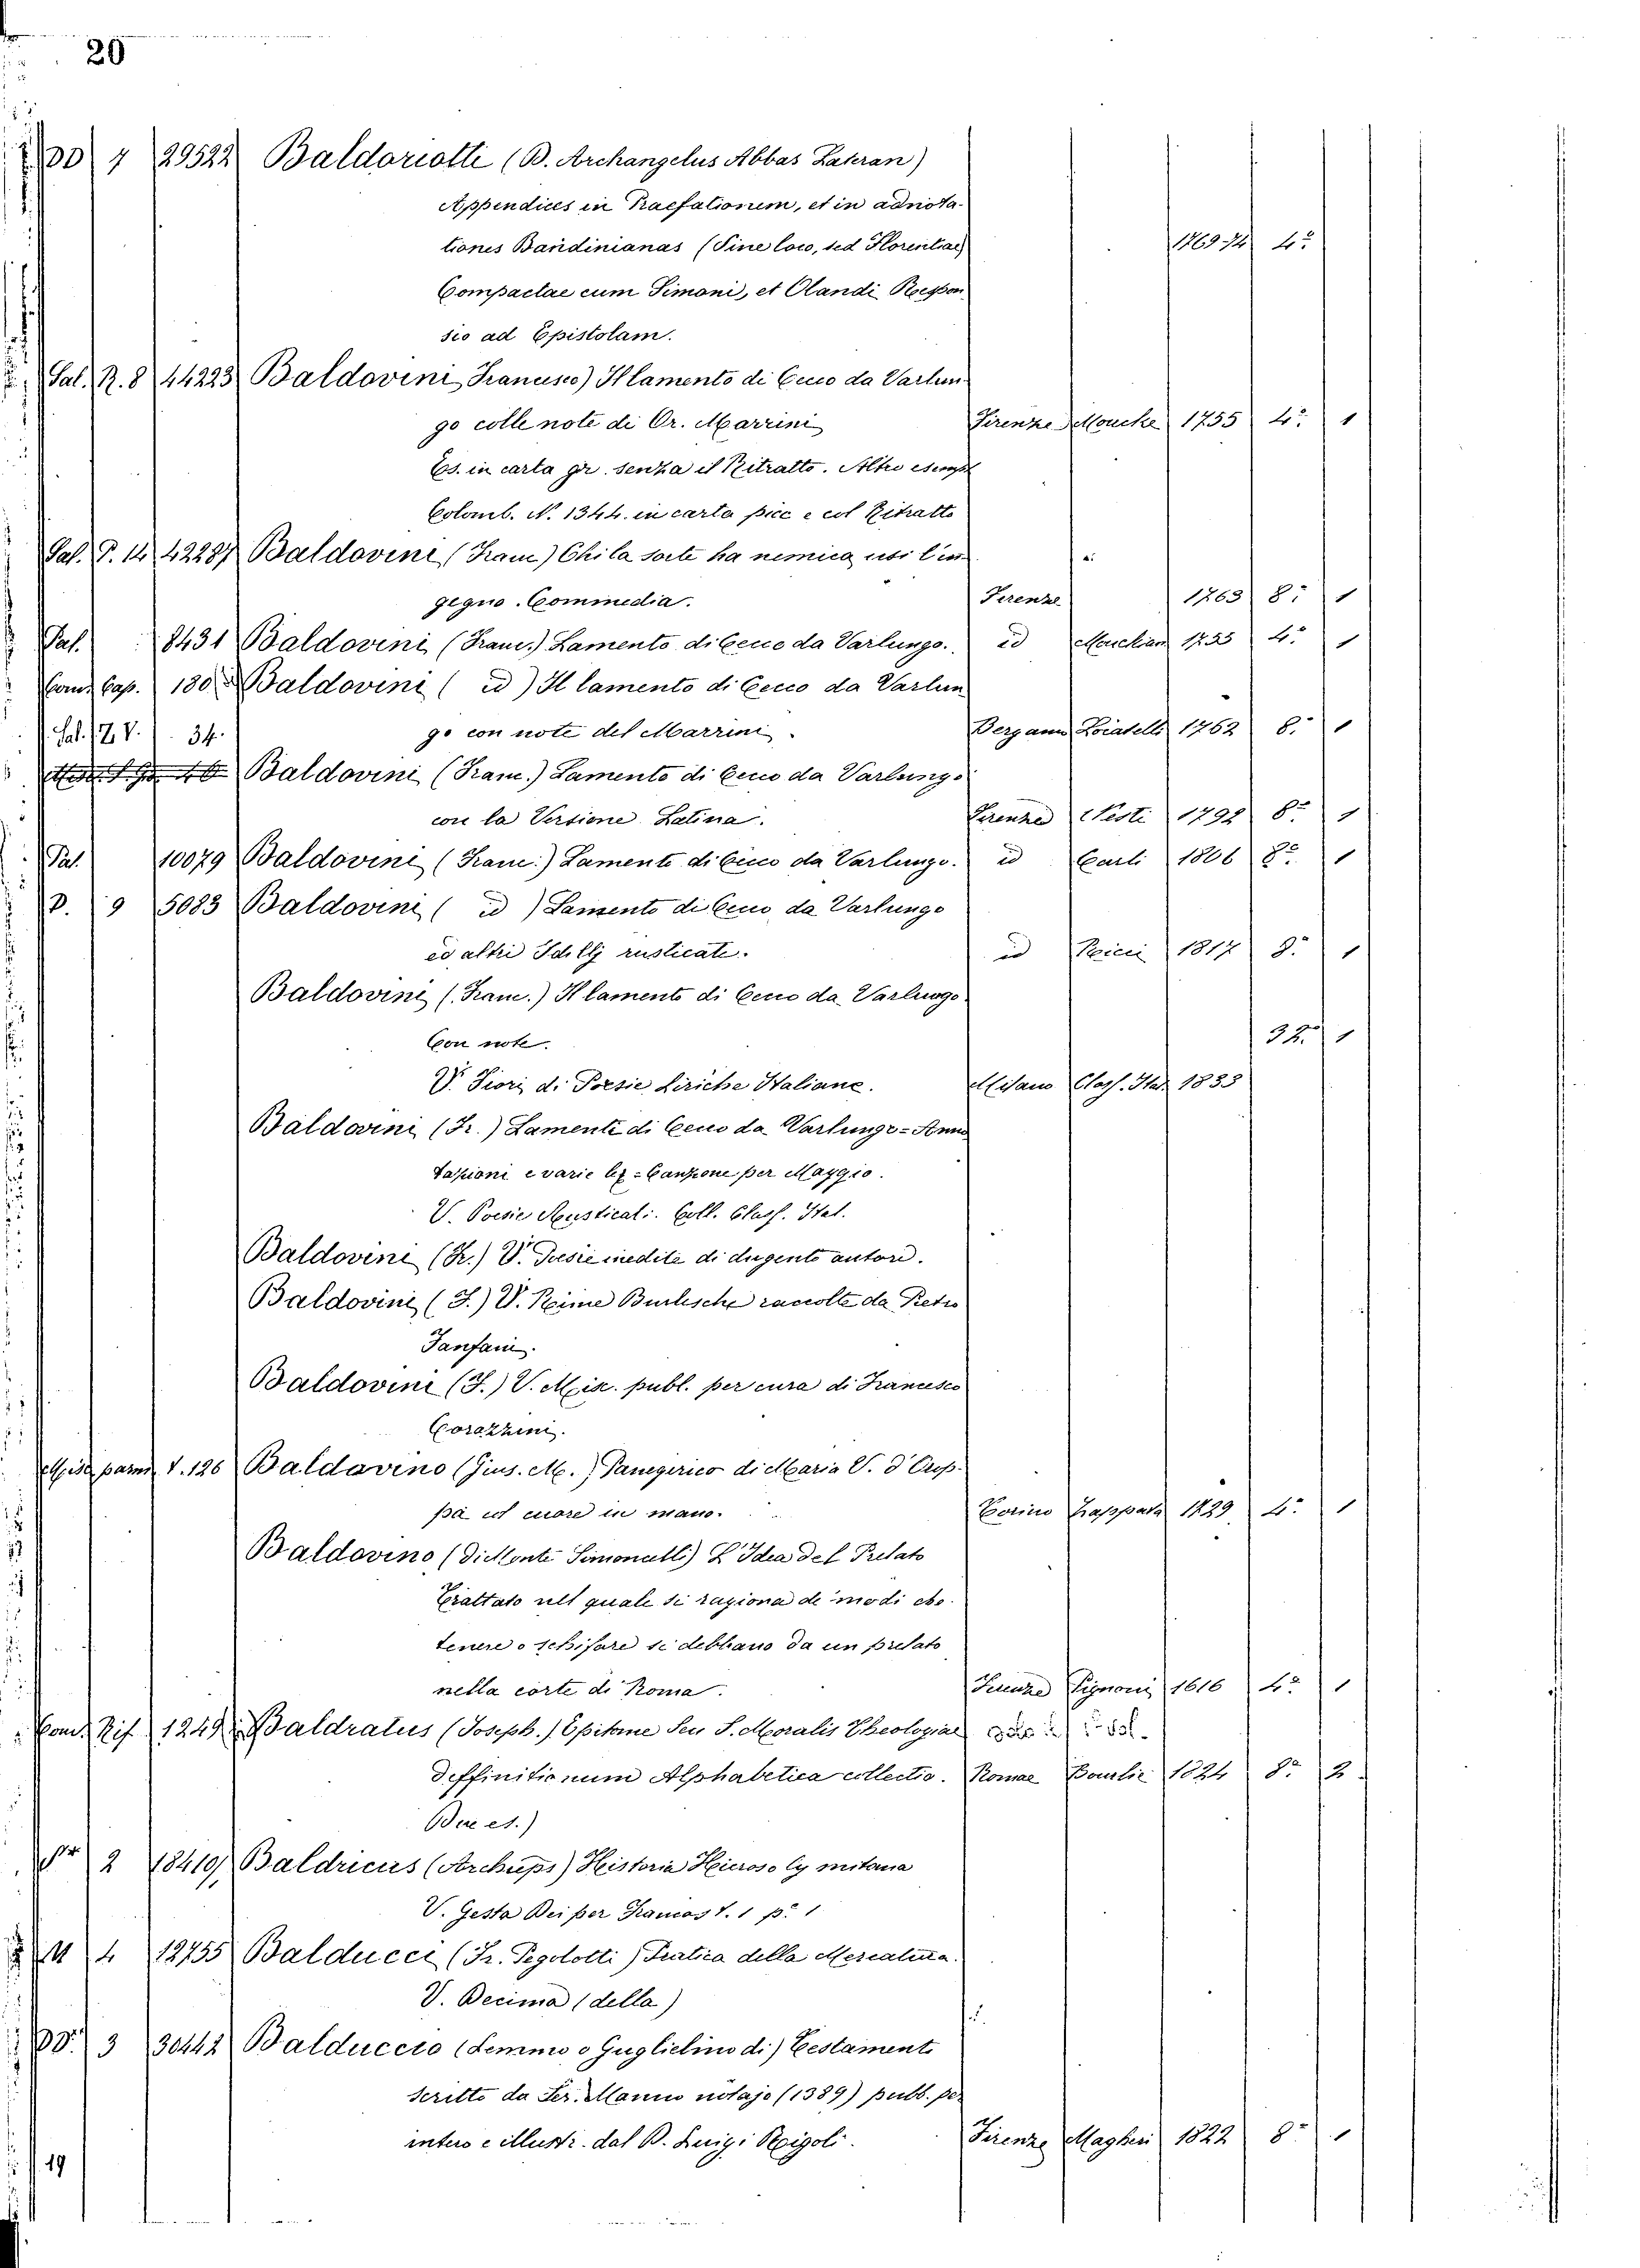 20
DD 4 29522 Baldoriotti (B. Archangelus Abbas Lateran)
Appendices in Praefationem, et in adnota-
tiones Bandinianas (Sine loco, sed Florentiae) 1769-74 4º
Compactae cum Simoni, et Olandi Respon
sio ad Epistolam.
Sal. R. 8 44223 Baldovini Francesco) Il lamento di Cecco da Varlun-
go colle note di Or. Marrini Firenze Moucke 1755 4º 1
Es. in carta gr. senza il Ritratto. Altro esempl
Colomb. N. 1344. in carta picc e col Ritratto
Pal. P. 14 42287 Baldovini (Franc) Chi la sorte ha nemica usi l'in
gegno. Commedia. Firenze 1763 8º 1
Pal. 8431 Baldovini (Franc.) Lamento di Cecco da Varlungo. id Mouckian 1755 4º 1
Cons. Cap. 180 Baldovini ( id ) Il lamento di Cecco da Varlun
Sal. 17 V. 34. go con note del Marrini. Bergamo Loiatelli 1762 8º 1
Baldovini (Franc.) Lamento di Cecco da Varlungo
con la Versione Latina. Firenze Nesti 1792 8º 1
Pal. 10079 Baldovini (Franc.) Lamento di Cecco da Varlungo. id Carli 1806 8º 1
D. 9 5083 Baldovini ( id ) Lamento di Cecco da Varlungo
ed altri Idillj rusticali. id Ricci 1817 8º 1
Baldovini (Franc.) Il lamento di Cecco da Varlungo
Con note. 32º 1
V. Fiori di Poesie Liriche Italiane. Milano Class. Ital 1833
Baldovini (Fr.) Lamento di Cecco da Varlungo = Anno
tazioni e varie lez = Canzone per Maggio.
V. Poesie Rusticali. Coll. Class. Ital.
Baldovini (Fr.) V. Poesie inedite di dugento autori.
Baldovini (F.) V. Rime Burlesche raccolte da Pietro
Fanfani.
Baldovini (F.) V. Misc. publ. per cura di Francesco
Corazzini.
Misc parm V. 126 Baldovino (Gius. M.) Panegirico di Maria V. d'Orop-
pa col cuore in mano. Torino Zappata 1829 4º 1
Baldovino (Di Monte Simoncelli) L'Idea del Prelato
Trattato nel quale si ragiona de modi che
tenere o schifare si debbano da un prelato
nella corte di Roma. Firenze Pignoni 1616 4º 1
Cons. Rif 1249 Baldratus (Joseph.) Epitome Seu S. Moralis Theologiae
deffinitionum Alphabetica collectio. Romae Bourlie 1824 8º 2
Due es.)
2 18410 Baldricus (Archieps) Historia Hierosolymitana
V. Gesta Dei per Francos t. 1 pº 1
M 4 12755 Balducci (Fr. Pegolotti) Pratica della Mercatura.
V. Decima (della)
DD. 3 30442 Balduccio (Lemmo o Guglielmo di) Testamento
scritto da Ser. Manno notajo (1389) pubb. per
intero e illustr. dal B. Luigi Rigoli. Firenze Magheri 1822 8º 1
19